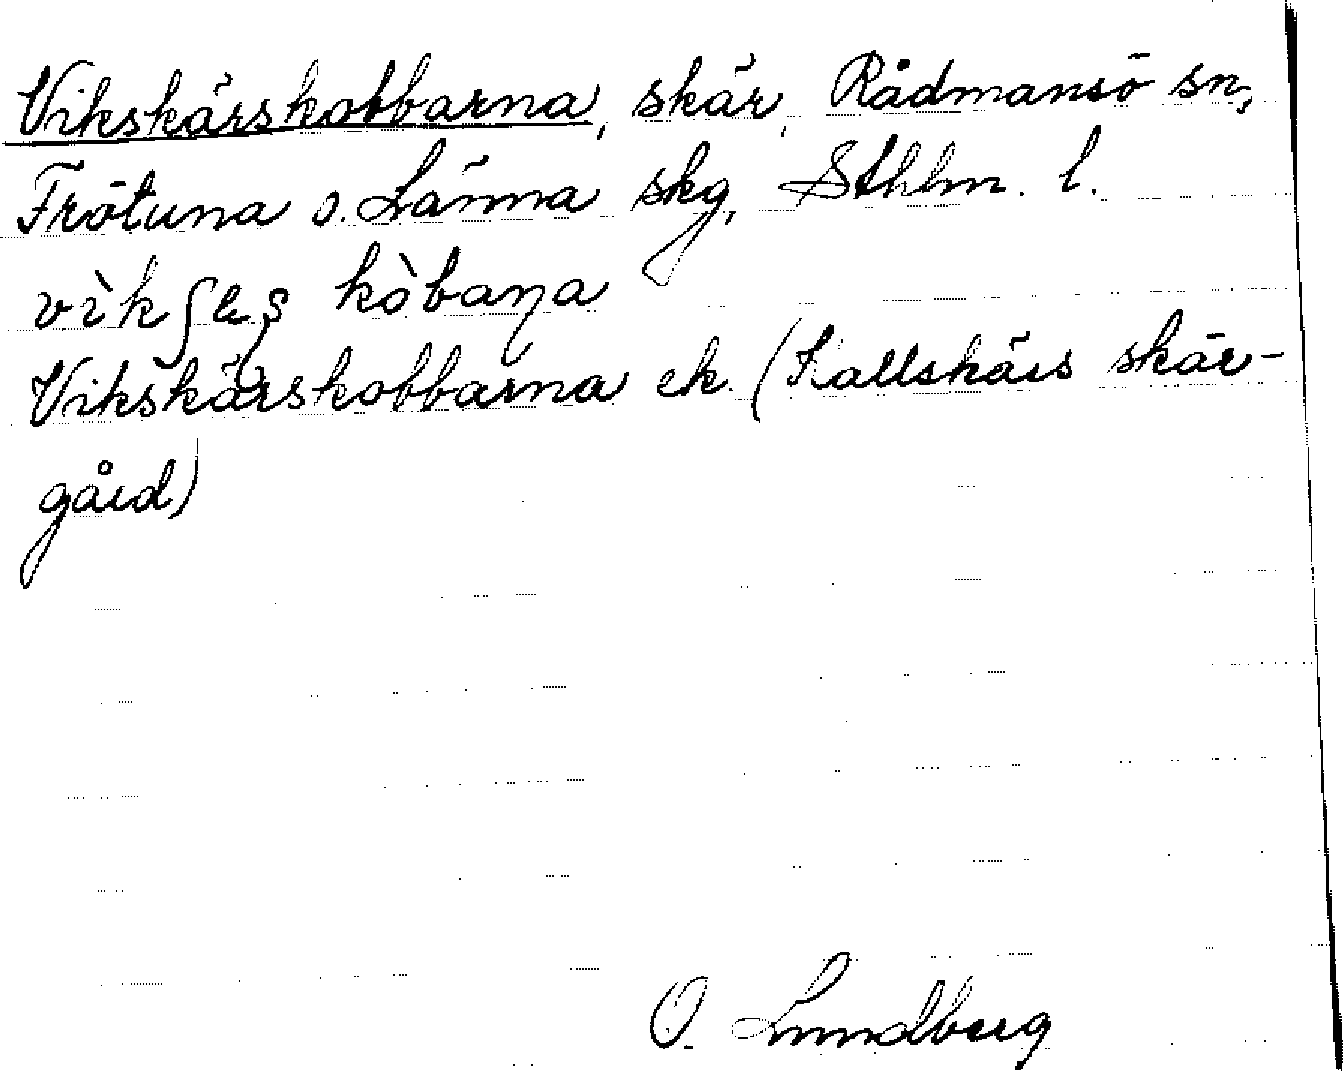 Vikskärskobbarna, skär, Rådmansö sn,
Frötuna o. Länna skg, Sthlm. l.
vìkʃæʂ kòbaɳa
Vikskärskobbarna ek. (Kallskärs skär-
gård)
O. Lundberg